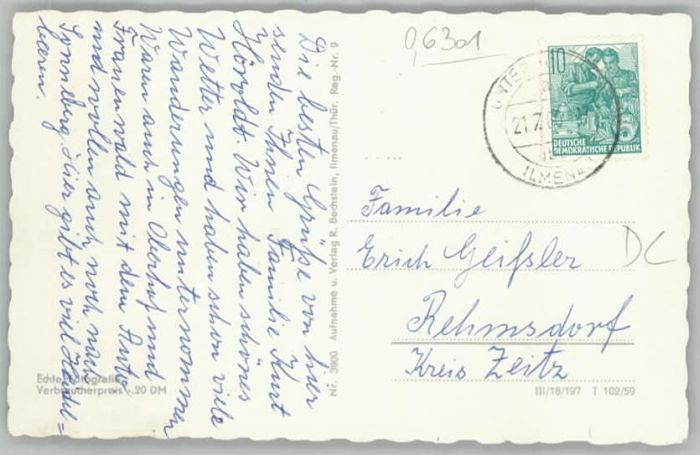 Die besten Grüße von hier
senden Ihnen Familie Kurt
Horoldt. Wir haben schönes
Wetter und haben schon viele
Wanderungen unternommen
Waren auch in Oberhof und
Frauenwald mit dem Auto
und wollen auch noch nach
Sonneberg, hier gibt es viel Heidel=
beern.
Echte Fotografie
Verbraucherpreis -.20 DM
Nr. 3900 Aufnahme u. Verlag R. Bechstein, Ilmenau/Thür. Reg.-Nr. 9
0,6301
10
DEUTSCHE
DEMOKRATISCHE REPUBLIK
21.7.
ILMENAU
Familie
Erich Geißler
DC
Rehmsdorf
Kreis Zeitz
III/18/197 T 102/59